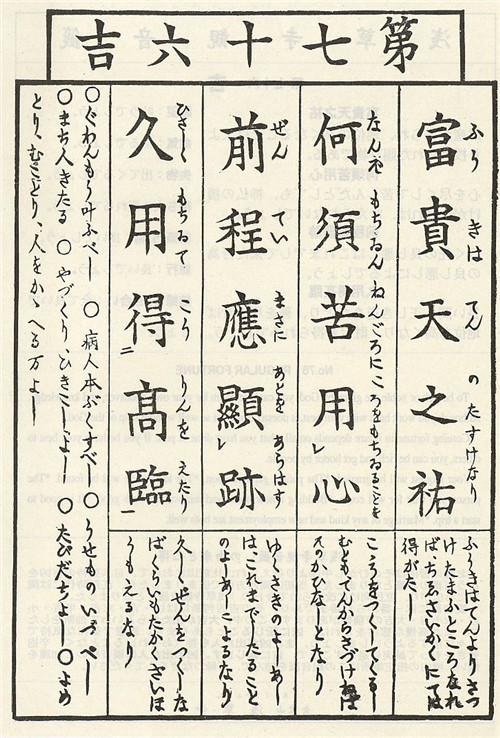 第七十六吉
富貴天之祐
ふうきはてんのたすけなり
ふうきはてんよりさづ
けたまふところなれ
ばちゑさいかくにては
得がたし
何須苦用心
なんぞもちゐんねんごろにこゝろをもちゐることを
こゝろをつくしてくるし
むともてんからさづけねば
そのかひなしとなり
前程應顯跡
ぜんていまさにあとをあらはす
ゆくさきのよしあし
はこれまでなすこと
によるなり
久用得髙臨
ひさしくもちゐてかうりんをえたり
久しくぜんを
ば、いつも
もえるなり
〇ぐわんもう叶ふべし〇病人本ぶくすべし〇うせものいづべし
〇まち人きたる〇やづくりひきこしよし〇たびだちよし〇よめ
とり、むことり、人をかゝへる万よし